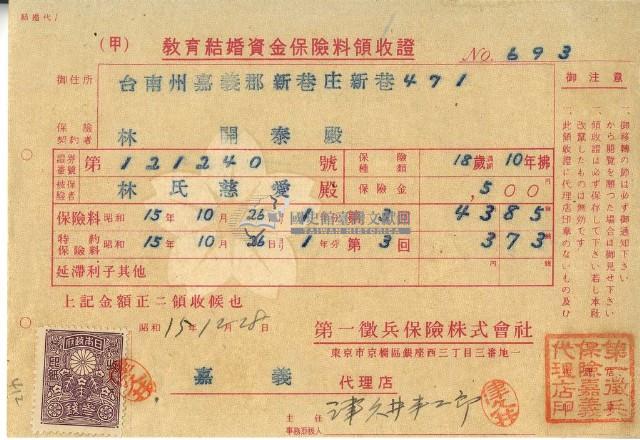 (甲) 教育結婚資金保險料領收證
No. 693
御住所 台南州嘉義郡新巷庄新巷471
御注意
保險契約者 林 開泰 殿
證券番號 第121240號
保險種類 18歲 10年拂
被保險者 林氏慈愛 殿
保險金 500
保險料 昭和15年10月26日ヨリ1年分 第3回 4385
特約保險料 昭和15年10月26日ヨリ1年分 第3回 373
延滯利子其他
上記金額正ニ領收候也
昭和15年12月28日
第一徵兵保險株式會社
東京市京橋區銀座西三丁目三番地一
嘉義 代理店
主任
事務取扱人
津久井丰二郎
一、御移轉の節は必ず御通知下さい
一、領收證は必ず保存して下さい若し本社から閲覽を願つた場合は御見せ下さい
一、此領收證に代理店印章のないもの及び改竄したものは無效です
國史館臺灣文獻館
TAIWAN HISTORICA
第一徵兵保險嘉義代理店印